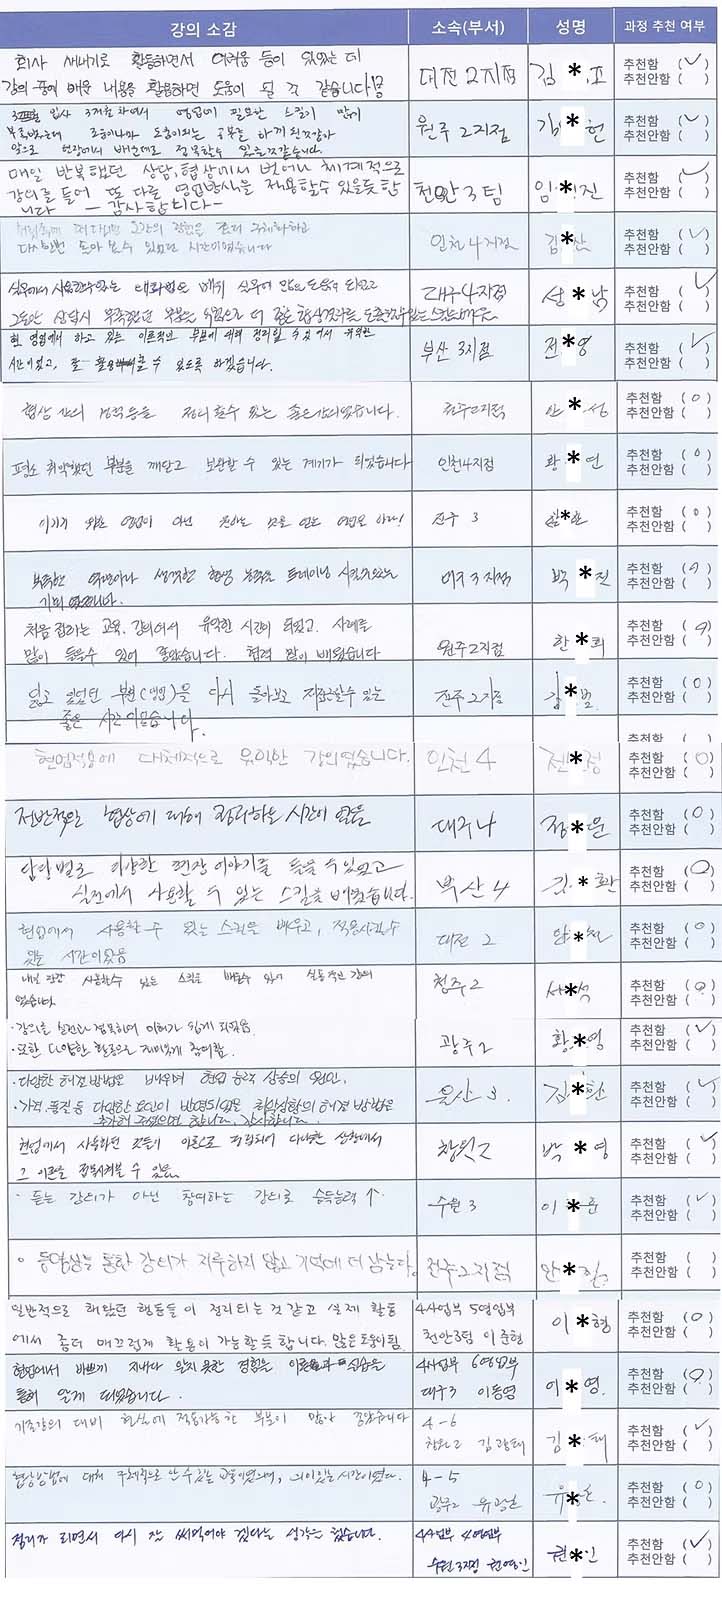 강의 소감 소속(부서) 성명 과정 추천 여부
회사 새내기로 활동하면서 어려움 등이 있었는데
강의 중에 배운 내용을 활용하면 도움이 될 것 같습니다!!
대전 2지점 김*
추천함 (✓)
추천안함 ( )
입사 3개월 차에서 영업에 필요한 스킬이 많이
앞으로 현장에서 배운대로 접목할수 있을것같습니다.
원주 2지점 김*헌
추천함 (✓)
추천안함 ( )
매일 반복했던 상담, 협상에서 벗어나 체계적으로
강의를 들어 또 다른 영업방식을 적용할수 있을듯 합
니다 - 감사합니다 -
천안 3팀 임*진
추천함 (✓)
추천안함 ( )
다시한번 돌아볼수 있었던 시간이었습니다
인천 4지점 김*산
추천함 (✓)
추천안함 ( )
대구4지점 성*남
추천함 (✓)
추천안함 ( )
현 영업에서 하고 있는 이론적인 부분에 대해 정리할 수 있어서 유익한
시간이었고, 잘 활용할 수 있도록 하겠습니다.
부산 3지점 전*영
추천함 (✓)
추천안함 ( )
협상 간의 정리할수 있는 좋은강의였습니다.
전주2지점 안*성
추천함 (o)
추천안함 ( )
평소 취약했던 부분을 깨닫고 보완할 수 있는 계기가 되었습니다
인천4지점 황*연
추천함 (o)
추천안함 ( )
이기기 위한 영업이 아닌 원하는 것을 얻는 영업을 하라!
전주 3
추천함 (o)
추천안함 ( )
부족한 역량이나 생각한 협상 능력을 트레이닝 시킬수있는
기회 였습니다.
대구3지점 박*진
추천함 (o)
추천안함 ( )
처음 접하는 교육, 강의여서 유익한 시간이 되었고, 사례를
많이 들을수 있어 좋았습니다. 협력 많이 배웠습니다
원주2지점 한*희
추천함 (o)
추천안함 ( )
잊고 있었던 부분(영업)을 다시 돌아보고 점검할수 있는
좋은 시간이었습니다.
전주 2지점 김*범
추천함 (o)
추천안함 ( )
추천함 ( )
현업적용에 대체적으로 유익한 강의였습니다.
인천 4 전*정
추천함 (o)
추천안함 ( )
전반적인 협상에 대해 정리하는 시간이 었음
대구4 정*운
추천함 (o)
추천안함 ( )
담당별로 다양한 현장 이야기를 들을 수 있었고
실전에서 사용할 수 있는 스킬을 배웠습니다.
부산 4 김*환
추천함 (o)
추천안함 ( )
현업에서 사용할 수 있는 스킬을 배우고, 적용시킬수
있는 시간이었음
대전 2
추천함 (o)
추천안함 ( )
내일 당장 사용할수 있는 스킬을 배울수 있어 실용적인 강의
였습니다.
청주2 서*석
추천함 (o)
추천안함 ( )
·강의를 실전과 접목하여 이해가 쉽게 되었음.
·또한 다양한 활동으로 재미있게 참여함.
광주2 황*영
추천함 (✓)
추천안함 ( )
·다양한 해결방법을 배우며 현업 능력 상승의 원인.
·가격, 품질 등 다양한 요인이 반영되었을 최악상황의 해결 방법을
추가해 주셨으면 합니다. 감사합니다.
울산 3. 김*한
추천함 (✓)
추천안함 ( )
현업에서 사용하던 것들이 이론으로 정립되어 다양한 상황에서
그 이론을 접목시켜볼 수 있었음.
창원2 박*영
추천함 (✓)
추천안함 ( )
· 듣는 강의가 아닌 참여하는 강의로 습득능력 ↑.
수원 3 이*준
추천함 (✓)
추천안함 ( )
· 동영상을 통한 강의가 지루하지 않고 기억에 더 남는다.
전주2지점
추천함 ( )
추천안함 ( )
일반적으로 해왔던 행동들이 정리되는 것 같고 실제 활동
에서 좀더 매끄럽게 활용이 가능할 듯 합니다. 많은 도움이됨
4사업부 5영업부
천안3팀 이준형 이*형
추천함 (o)
추천안함 ( )
현업에서 바쁘게 지내다 알지 못한 경험을 이론과 실습을
통해 알게 되었습니다.
4사업부 6영업부
대구3 이동영 이*영.
추천함 (o)
추천안함 ( )
기존강의 대비 현실에 적용가능한 부분이 많아 좋았습니다
4-6
창원2 김광태 김*태
추천함 (✓)
추천안함 ( )
협상방법에 대해 구체적으로 알 수 있는 교육이였으며, 의미있는 시간이였다.
4-5
추천함 (o)
추천안함 ( )
정리가 되면서 다시 잘 써먹어야 겠다는 생각을 했습니다.
4사업부 4영업부
수원3지점 권영인 권*인
추천함 (✓)
추천안함 ( )